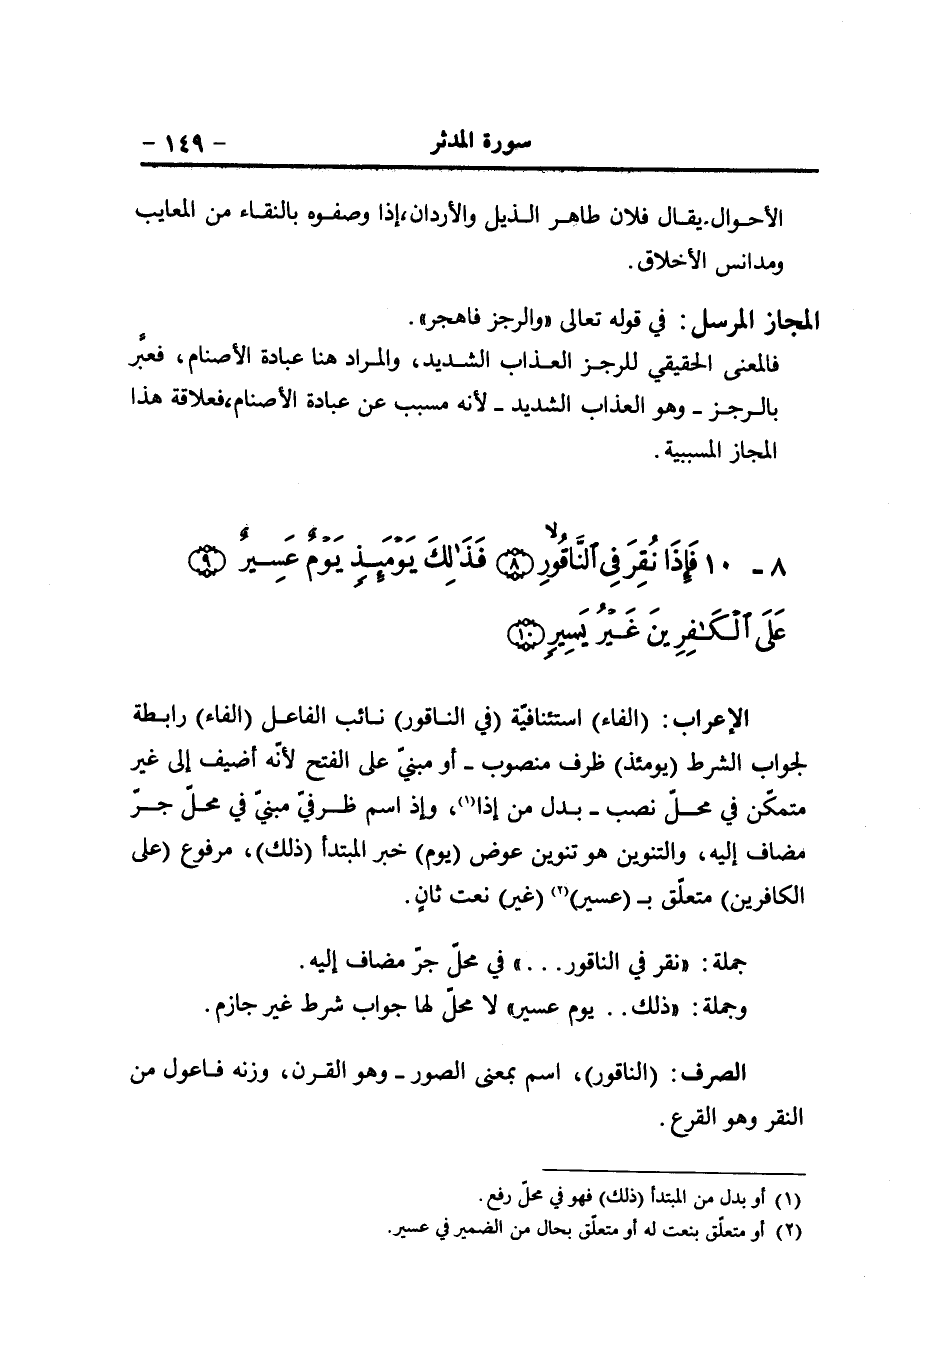 سورة المدثر - ١٤٩ -
الأحوال. يقال فلان طاهر الذيل والأردان، إذا وصفوه بالنقاء من المعايب
ومدانس الأخلاق.
المجاز المرسل: في قوله تعالى «والرجز فاهجر».
فالمعنى الحقيقي للرجز العذاب الشديد، والمراد هنا عبادة الأصنام، فعبَّر
بالرجز ـ وهو العذاب الشديد ـ لأنه مسبب عن عبادة الأصنام، فعلاقة هذا
المجاز المسببية.
٨ ـ ١٠ فَإِذَا نُقِرَ فِي ٱلنَّاقُورِ ﴿٨﴾ فَذَٰلِكَ يَوْمَئِذٍ يَوْمٌ عَسِيرٌ ﴿٩﴾
عَلَى ٱلْكَـٰفِرِينَ غَيْرُ يَسِيرٍ ﴿١٠﴾
الإعراب: (الفاء) استئنافيّة (في الناقور) نائب الفاعل (الفاء) رابطة
لجواب الشرط (يومئذ) ظرف منصوب ـ أو مبنيّ على الفتح لأنّه أضيف إلى غير
متمكّن في محلّ نصب ـ بدل من إذا(١)، وإذ اسم ظرفيّ مبنيّ في محلّ جرّ
مضاف إليه، والتنوين هو تنوين عوض (يوم) خبر المبتدأ (ذلك)، مرفوع (على
الكافرين) متعلّق بـ (عسير)(٢) (غير) نعت ثانٍ.
جملة: «نقر في الناقور...» في محلّ جرّ مضاف إليه.
وجملة: «ذلك.. يوم عسير» لا محلّ لها جواب شرط غير جازم.
الصرف: (الناقور)، اسم بمعنى الصور ـ وهو القرن، وزنه فاعول من
النقر وهو القرع.
(١) أو بدل من المبتدأ (ذلك) فهو في محلّ رفع.
(٢) أو متعلّق بنعت له أو متعلّق بحال من الضمير في عسير.